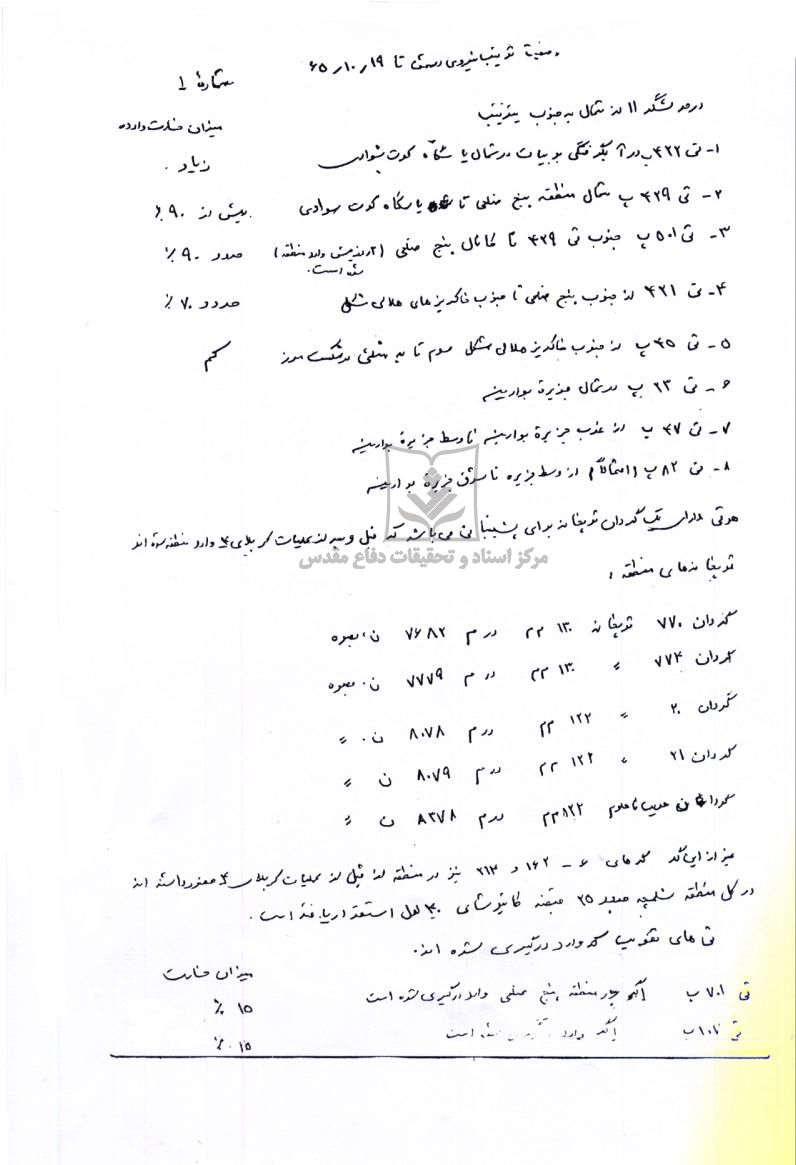 وضعیت ترتیب نیروی دشمن تا ۱۹ر۱۰ر۶۵
شمارهٔ ۱
در حد لشگر ۱۱ از شمال به جنوب بترتیب
میزان خسارت وارده
۱- تی ۴۲۲ پ در آبگرفتگی بوبیان در شمال پاسگاه کوت سواری
زیاد .
۲- تی ۴۲۹ پ شمال منطقه پنج ضلعی تا پاسگاه کوت سوادی
بیش از ۹۰٪
۳- تی ۵۰۱ پ جنوب تی ۴۲۹ تا کانال پنج ضلعی (۲روز پیش وارد منطقه شده است.)
حدود ۹۰٪
۴- تی ۴۲۱ از جنوب پنج ضلعی تا جنوب خاکریزهای هلالی شکل
حدود ۷۰٪
۵- تی ۴۵ پ از جنوب خاکریز هلالی شکل سوم تا به مثلثی شکست مرز
کم
۶- تی ۲۳ پ در شمال جزیرهٔ بوارینه
۷- تی ۴۷ پ از غرب جزیرهٔ بوارینه تا وسط جزیرهٔ بوارینه
۸- تی ۸۲ پ از وسط جزیره تا شرق جزیرهٔ بوارینه
هر تی دارای یک گردان توپخانه برای پشتیبانی می‌باشد که قبل و بعد از عملیات کربلای ۴ وارد منطقه شده اند
مرکز اسناد و تحقیقات دفاع مقدس
توپخانه‌های منطقه :
گردان ۷۷۰ توپخانه ۱۳۰ م‌م در م ۷۶۸۲ ن. بصره
گردان ۷۷۴ " ۱۳۰ م‌م در م ۷۷۷۹ ن. بصره
گردان ۲۰ " ۱۲۲ م‌م در م ۸۰۷۸ ن. "
گردان ۲۱ " ۱۲۲ م‌م در م ۸۰۷۹ ن "
گردان نامعلوم ۱۲۲ م‌م در م ۸۲۷۸ ن "
غیر از این که گد های ۶ - ۱۶۲ و ۲۱۳ نیز در منطقه از قبل از عملیات کربلای ۴ حضور داشته اند
در کل منطقه شلمچه حدود ۳۵ قبضه کاتیوشای ۴۰ لول استقرار یافته است .
تی های تقویت که وارد درگیری شده اند.
میزان خسارت
تی ۷۰۱ پ که در منطقه پنج ضلعی وارد درگیری شده است
۱۵ ٪
تی ۱۰۲ پ که وارد شده است
۱۵ ٪